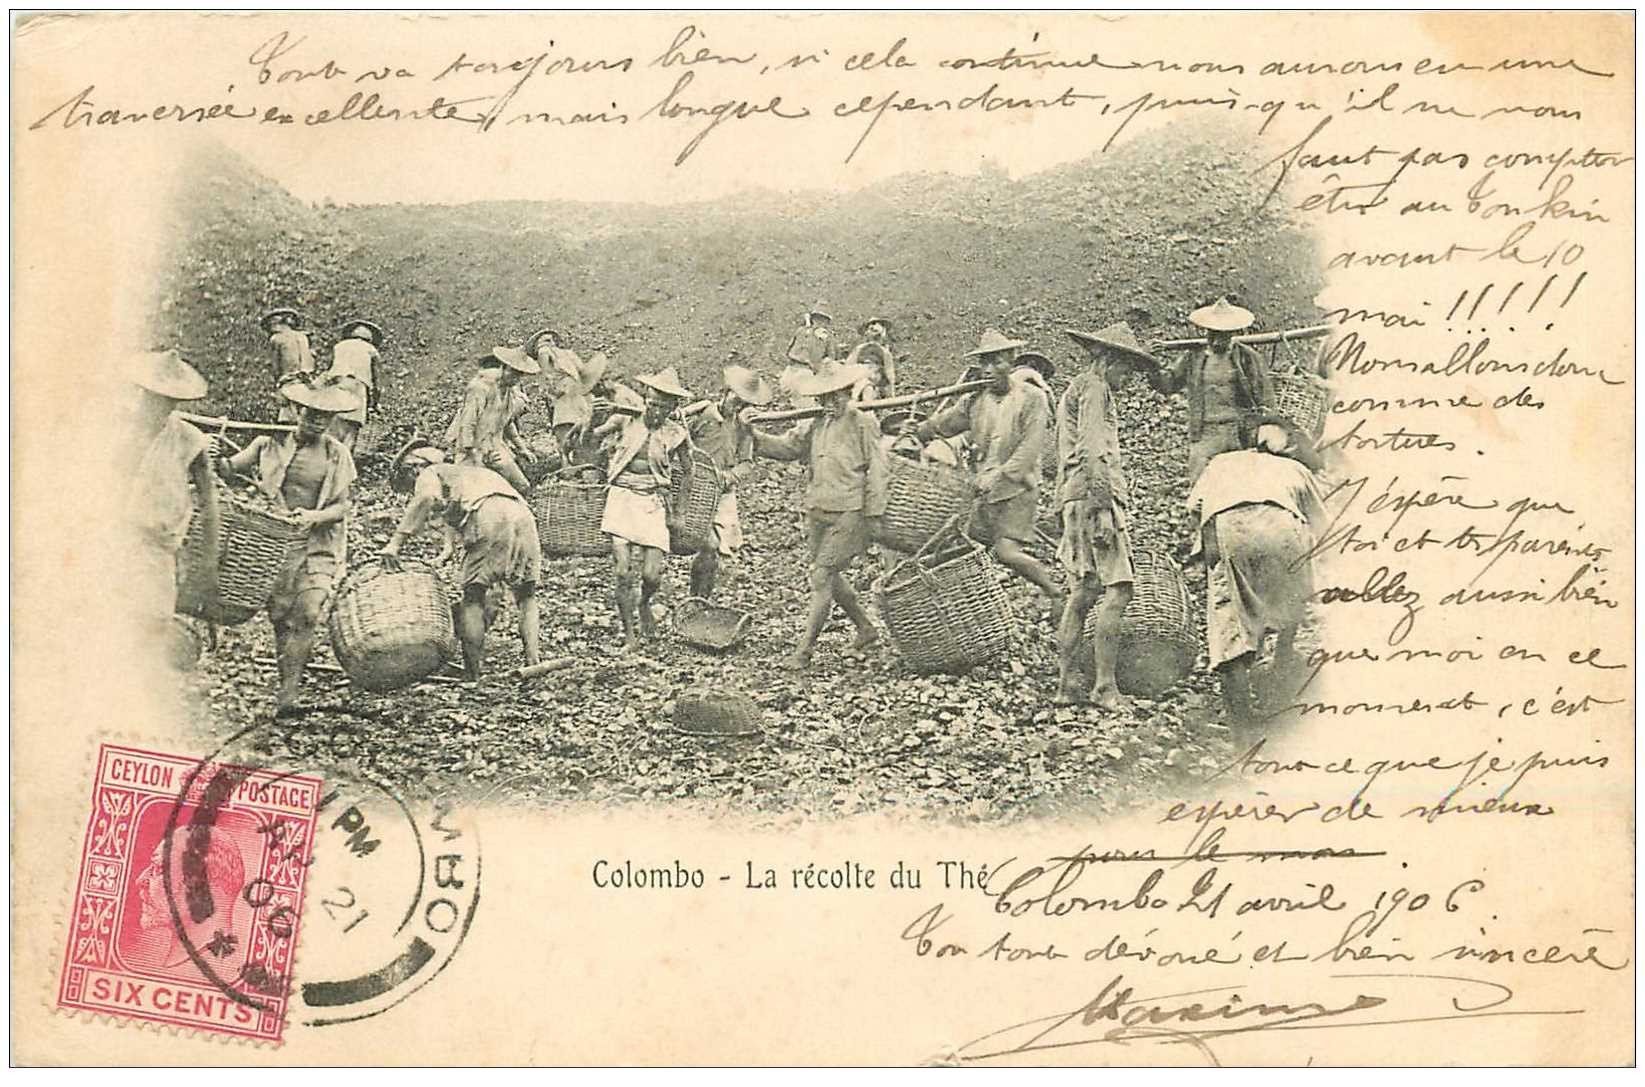 Tout va toujours bien, si cela continue nous aurons eu une
traversée excellente, mais longue cependant, puis-qu'il ne nous
faut pas compter
être au Tonkin
avant le 10
mai !!!!!
Nous allons donc
comme des
tortues.
J'éspère que
toi et tes parents
allez aussi bien
que moi en ce
moment, c'est
tout ce que je puis
espérer de mieux
pour le mois.
Colombo 21 avril 1906.
Ton tout dévoué et bien sincère
Maxime
Colombo - La récolte du Thé
CEYLON POSTAGE
SIX CENTS
MBO
1 PM
AP 21
06